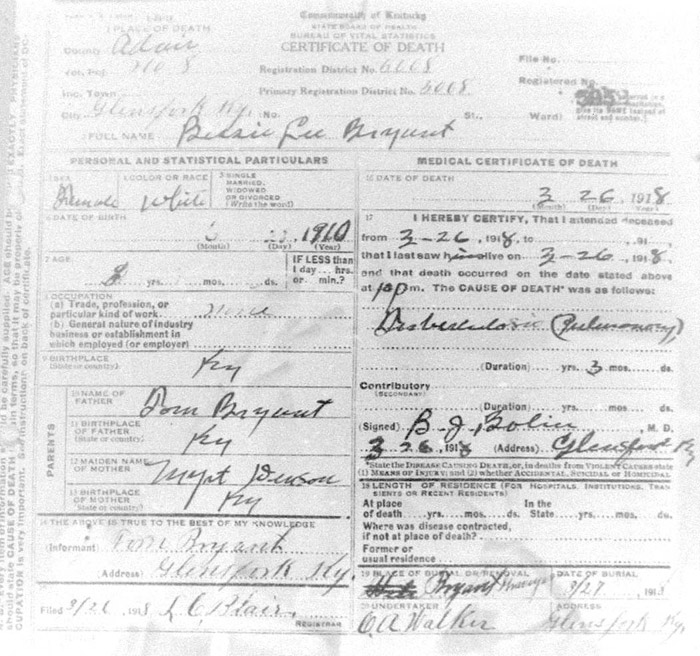 Commonwealth of Kentucky
STATE BOARD OF HEALTH
BUREAU OF VITAL STATISTICS
CERTIFICATE OF DEATH
1 PLACE OF DEATH
County Adair
Vot. Pct. No 8
Inc. Town
City Glensfork Ky. No. St., Ward)
Registration District No. 6008
Primary Registration District No. 6008
File No.
Registered No.
2 FULL NAME Bessie Lee Bryant
PERSONAL AND STATISTICAL PARTICULARS
3 SEX Female
4 COLOR OR RACE White
5 SINGLE
MARRIED,
WIDOWED
OR DIVORCED
(Write the word)
6 DATE OF BIRTH
1910
(Month) (Day) (Year)
7 AGE
8 yrs. mos. ds.
IF LESS than
1 day... hrs.
or min.?
8 OCCUPATION
(a) Trade, profession, or
particular kind of work
(b) General nature of industry
business or establishment in
which employed (or employer)
9 BIRTHPLACE
(State or country) Ky
PARENTS
10 NAME OF
FATHER Tom Bryant
11 BIRTHPLACE
OF FATHER
(State or country) Ky
12 MAIDEN NAME
OF MOTHER
13 BIRTHPLACE
OF MOTHER
(State or country) Ky
14 THE ABOVE IS TRUE TO THE BEST OF MY KNOWLEDGE
(Informant) Tom Bryant
(Address) Glensfork Ky.
Filed 3/26 1918 L C Blair.
REGISTRAR
MEDICAL CERTIFICATE OF DEATH
16 DATE OF DEATH
3 26, 1918
(Month) (Day) (Year)
17 I HEREBY CERTIFY, That I attended deceased
from 3-26, 1918, to , 191
that I last saw h alive on 3-26, 1918,
and that death occurred on the date stated above
at 1 p m. The CAUSE OF DEATH* was as follows:
(Pulmonary)
(Duration) yrs. 3 mos. ds.
Contributory
(SECONDARY)
(Duration) yrs. mos. ds.
(Signed) B. J. Bolin, M. D.
3 26 1918 (Address) Glensfork Ky
*State the DISEASE CAUSING DEATH, or, in deaths from VIOLENT CAUSES state
(1) MEANS OF INJURY; and (2) whether ACCIDENTAL, SUICIDAL or HOMICIDAL.
18 LENGTH OF RESIDENCE (FOR HOSPITALS, INSTITUTIONS, TRANSIENTS OR RECENT RESIDENTS)
At place In the
of death yrs. mos. ds. State yrs. mos. ds.
Where was disease contracted,
if not at place of death?
Former or
usual residence
19 PLACE OF BURIAL OR REMOVAL Bryant
DATE OF BURIAL 3/27 1918
20 UNDERTAKER
C.A Walker
ADDRESS
Glensfork Ky.